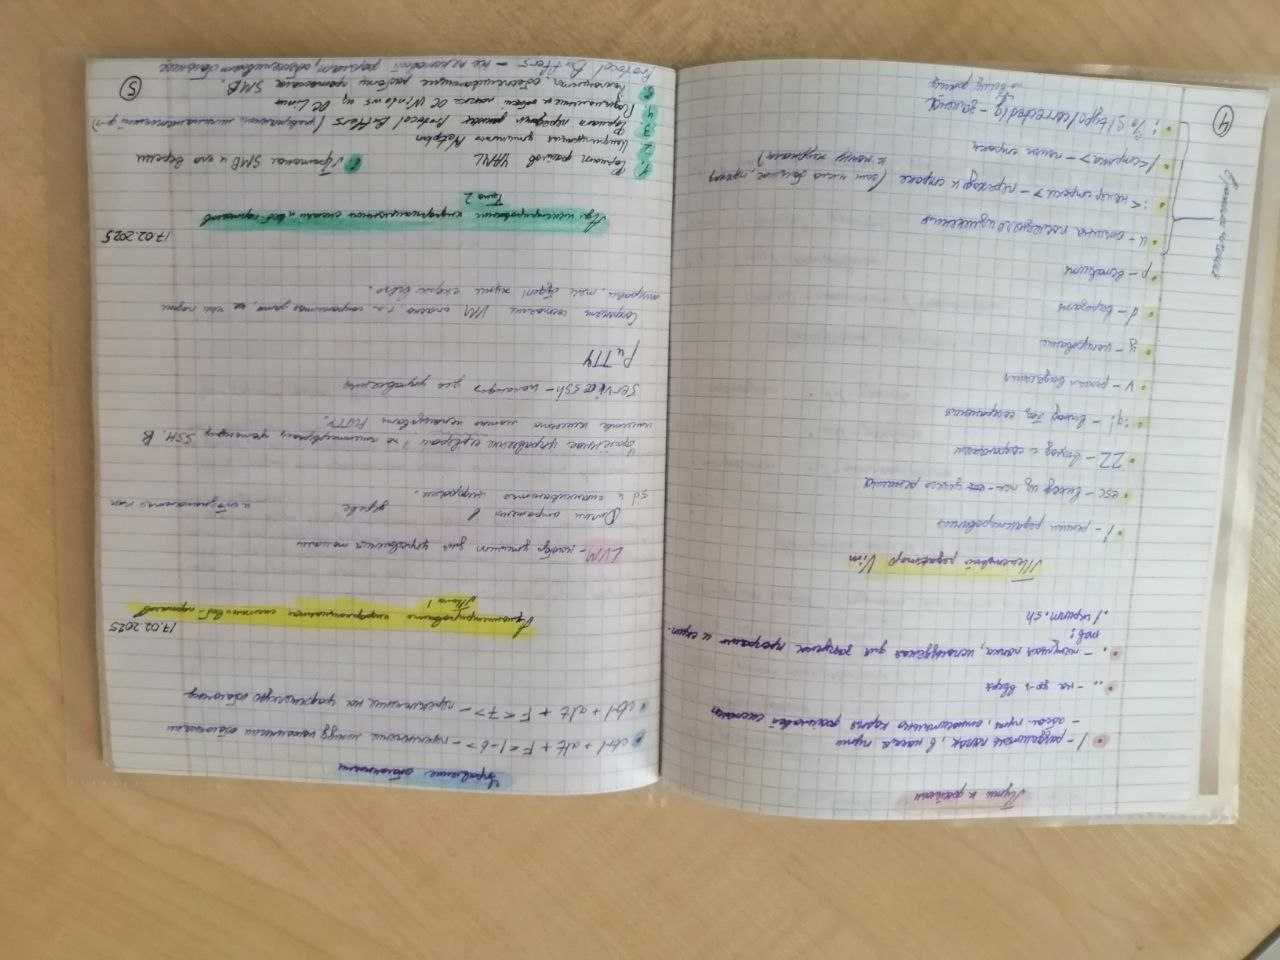 Пути к файлам
/ - разделитель папок, в начале пути
- абсол. путь, относительно корня файловой системы
.. - на ур-ь вверх
. - текущая папка, используемая для запуска программ и скрип-
тов:
./скрипт.sh
Текстовый редактор Vim
i - режим редактирования
esc - выход из тек- ущего режима
ZZ - выход с сохранением
:q! - выход без сохранения
v - режим выделения
y - копирование
d - вырезать
p - вставить
u - отмена последнего изменения
:<номер строки> - переход к строке (если число большое, переход
к концу журнала)
/<строка> - поиск строки
:%s/typo/corrected/g - замена
по всему файлу
4
Управление оболочками
ctrl + alt + F<1-6> - переключение между консольными оболочками
ctrl + alt + F<7> - переключение на графическую оболочку
17.02.2025
Администрирование информационных систем и веб-порталов
Тема 1
LVM - набор утилит для управления томами
Диски отражены в дереве и обозначаются как
sd и оканчиваются цифрами.
Удалённое управление сервером по протоколу SSH. В
качестве клиента можно использовать PuTTY.
service ssh - команда для управления
PuTTY
Сохранять состояние VM опасно, т.к. сохраняется дата, чем позже
тем будет хуже скорее всего.
17.02.2025
Администрирование информационной систем и веб-порталов
Тема 2
1. Формат файлов YAML
2 Конфигурация утилиты Netplan
3 Формат передачи данных Protocol Buffers
4. Подключение к общей папке ОС Windows из ОС Linux
5 Компоненты, обеспечивающие работу протокола SMB.
6. Протокол SMB и его версии
Protocol Buffers - не текстовый формат, обеспечивает большее
5